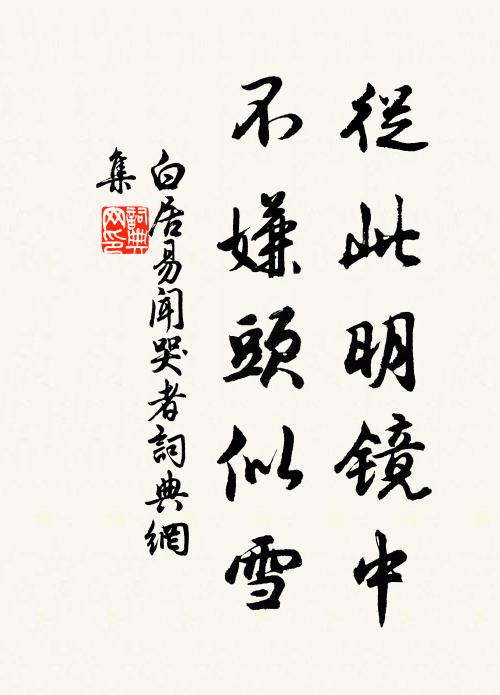 從此明鏡中
不嫌頭似雪
白居易聞哭者詞典網
集
詞典
网印